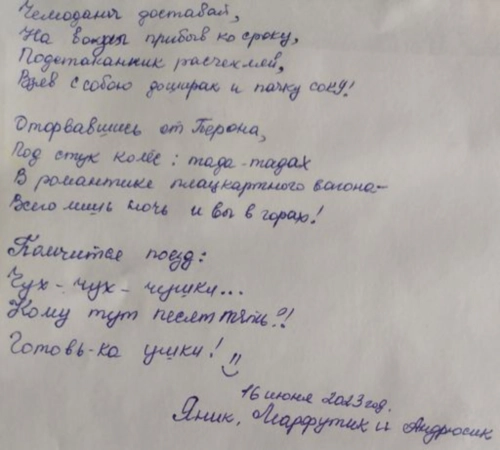 Чемоданы доставай,
На вокзал прибыв ко сроку,
Подстаканник расчехляй,
Взяв с собою доширак и пачку соку!
Оторвавшись от Перона,
Под стук колёс: тада-тадах
В романтике плацкартного вагона-
Всего лишь ночь и вы в горах!
Помчится поезд:
Чух-чух-чушки...
Кому тут песят пять?!
Готовь-ка ушки!
16 июня 2023 год.
Яник, Марфутик и Андрюсик